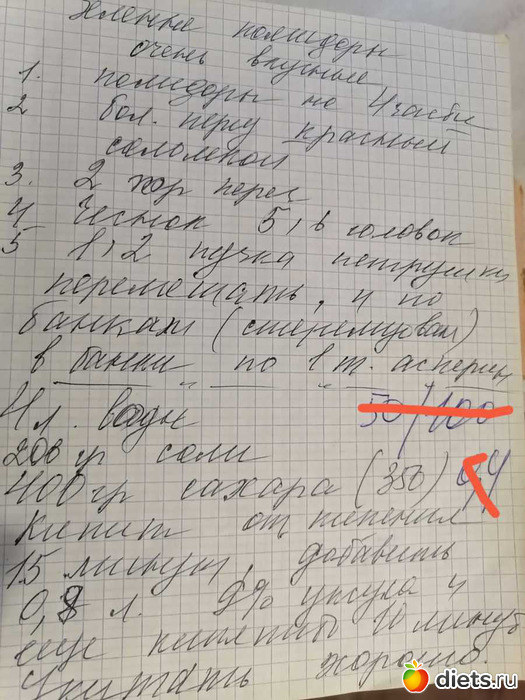 Зеленые помидоры
очень вкусные
1. помидоры на 4 части
2 бол. перец красный
соломкой
3. 2 жор перец
4 Чеснок 5,6 головок
5 1,2 пучка петрушки
перемешать, и по
банкам (
в банки по 1 т. аспирин
4 л. воды 50/100
200 гр соли
400 гр сахара (350)
Кипит от кипения
15 минут, добавить
0,8 л. 9% уксуса и
еще кипятить 10 минут
хорошо
diets.ru